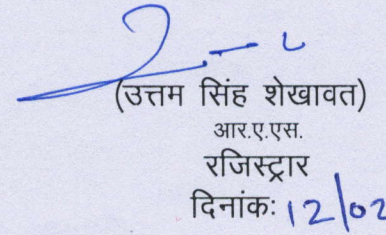 (उत्तम सिंह शेखावत)
आर.ए.एस.
रजिस्ट्रार
दिनांकः 12/02